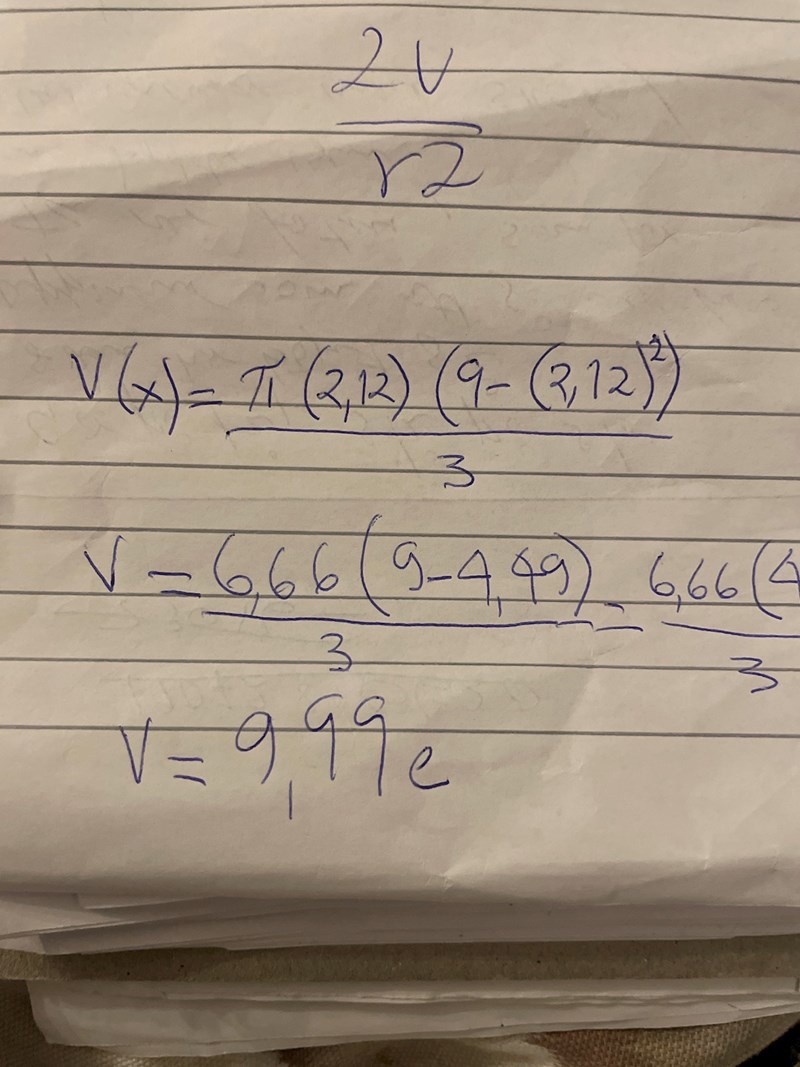 2V
r2
V(x) = π (2,12) (9-(2,12)²)
3
V = 6,66 (9-4,49) = 6,66 (4
3 3
V = 9,99 e